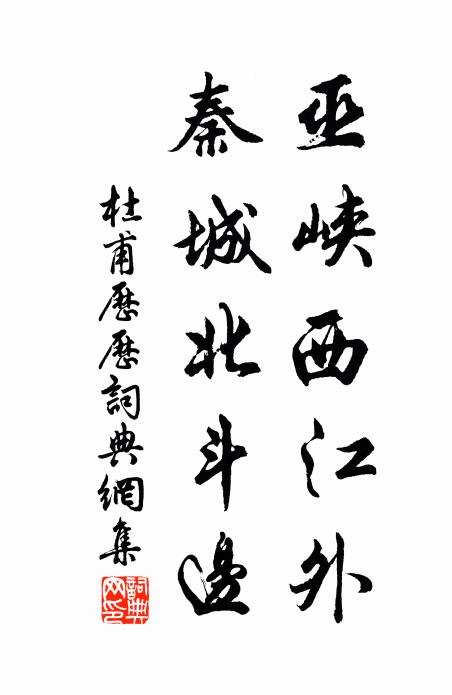 巫峽西江外
秦城北斗邊
杜甫歷歷詞典網集
詞典網印